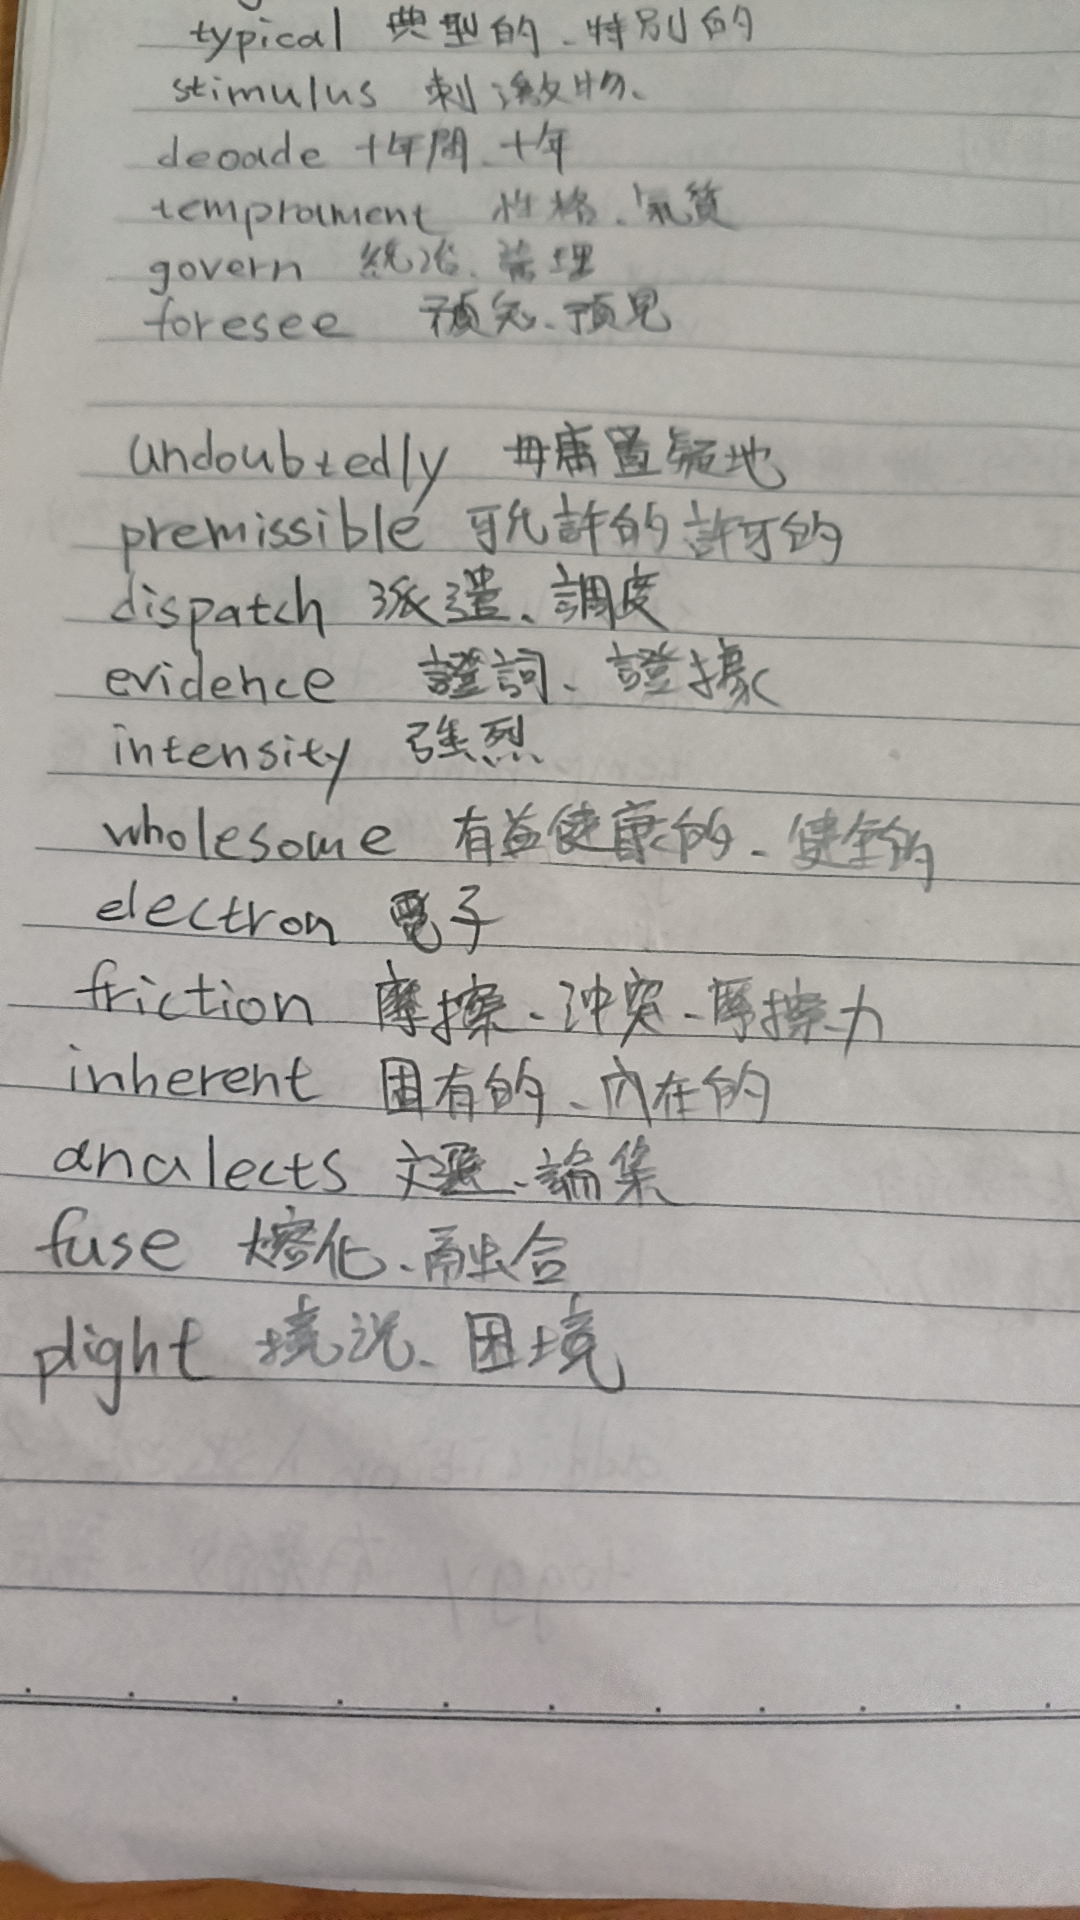 typical 典型的、特別的
stimulus 刺激物、
decade 十年間、十年
temprament 性格、氣質
govern 統治、管理
foresee 預知、預見
undoubtedly 毋庸置疑地
premissible 可允許的 許可的
dispatch 派遣、調度
evidence 證詞、證據
intensity 強烈
wholesome 有益健康的、健全的
electron 電子
friction 摩擦、沖突、摩擦力
inherent 固有的、內在的
analects 文選、論集
fuse 熔化、融合
plight 境況、困境